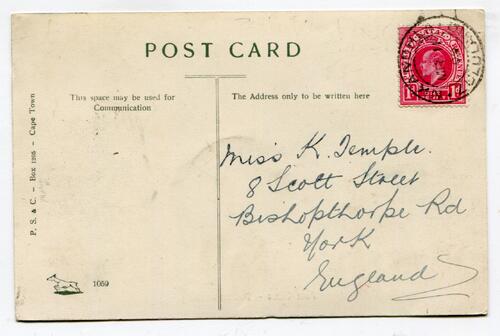 POST CARD
This space may be used for
Communication
The Address only to be written here
P. S. & C. – Box 1265 – Cape Town
1059
1d
1d
Miss K. Temple.
8 Scott Street
Bishopthorpe Rd
York
England